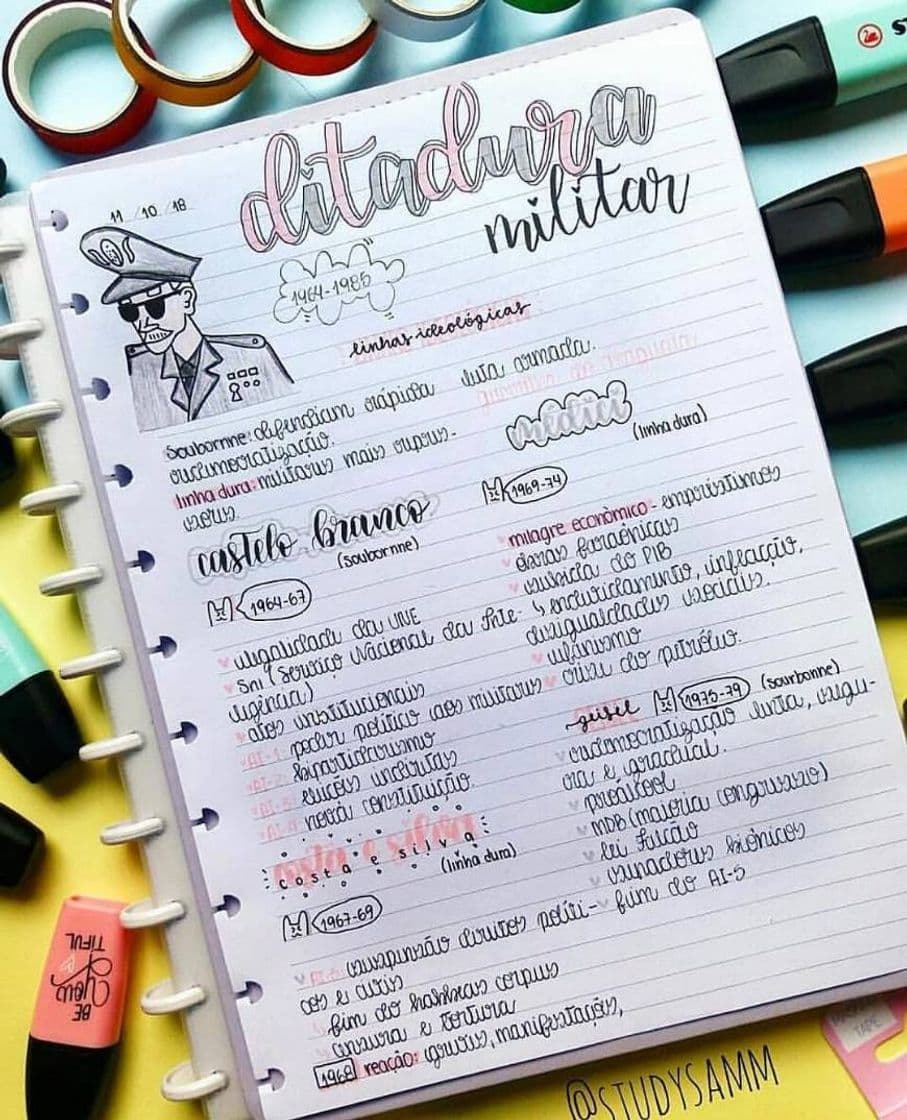 ditadura
militar
11/10/18
1964-1985
linhas ideológicas
Soubornne: defendiam rápida
redemocratização.
linha dura: militares mais
castelo branco
(soubornne)
1964-67
ilegalidade da UNE
SNI (Serviço Nacional da Inte-
ligência)
atos institucionais
AI-1: poder político aos militares
AI-2: bipartidarismo
AI-3: eleições indiretas
AI-4: nova constituição.
costa e silva
(linha dura)
1967-69
AI-5: suspensão direitos políti-
cos e civis
fim do habeas corpus
censura e tortura
1968 reação: greves, manifestações,
luta armada.
guerrilha do Araguaia
médici
(linha dura)
1969-74
milagre econômico - empréstimos
obras faraônicas
subida do PIB
↳ endividamento, inflação,
desigualdades sociais.
ufanismo
crise do petróleo.
geisel 1975-79 (sourbonne)
redemocratização lenta, segu-
ra e gradual.
proálcool
MDB (maioria congresso)
lei falcão
senadores biônicos
fim do AI-5
BE
YOU
TIFUL
TAPE
@STUDYSAMM